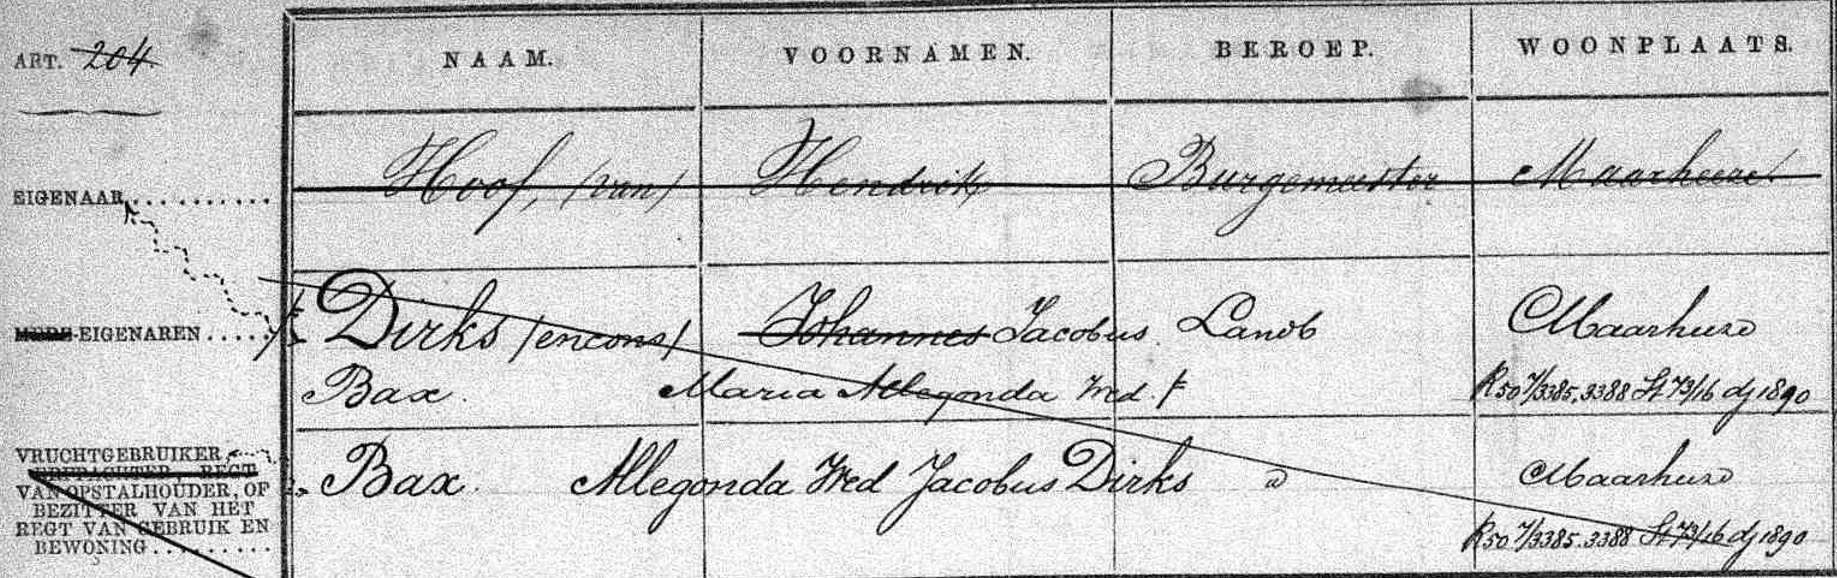 ART. 204
NAAM. VOORNAMEN. BEROEP. WOONPLAATS.
EIGENAAR.......... Hoof, (van) Hendrik Burgemeester Maarheeze
MEDE-EIGENAREN..... Dirks (encons) Johannes Jacobus. Landb Maarheeze
Bax. Maria Allegonda Wed. R50 7/3385.3388 St 73/16 dj 1890
VRUCHTGEBRUIKER,
ERFPACHTER, REGT
VAN OPSTALHOUDER, OF Bax. Allegonda Wed Jacobus Dirks Maarheeze
BEZITTER VAN HET
REGT VAN GEBRUIK EN
BEWONING......... R50 7/3385.3388 St 73/16 dj 1890